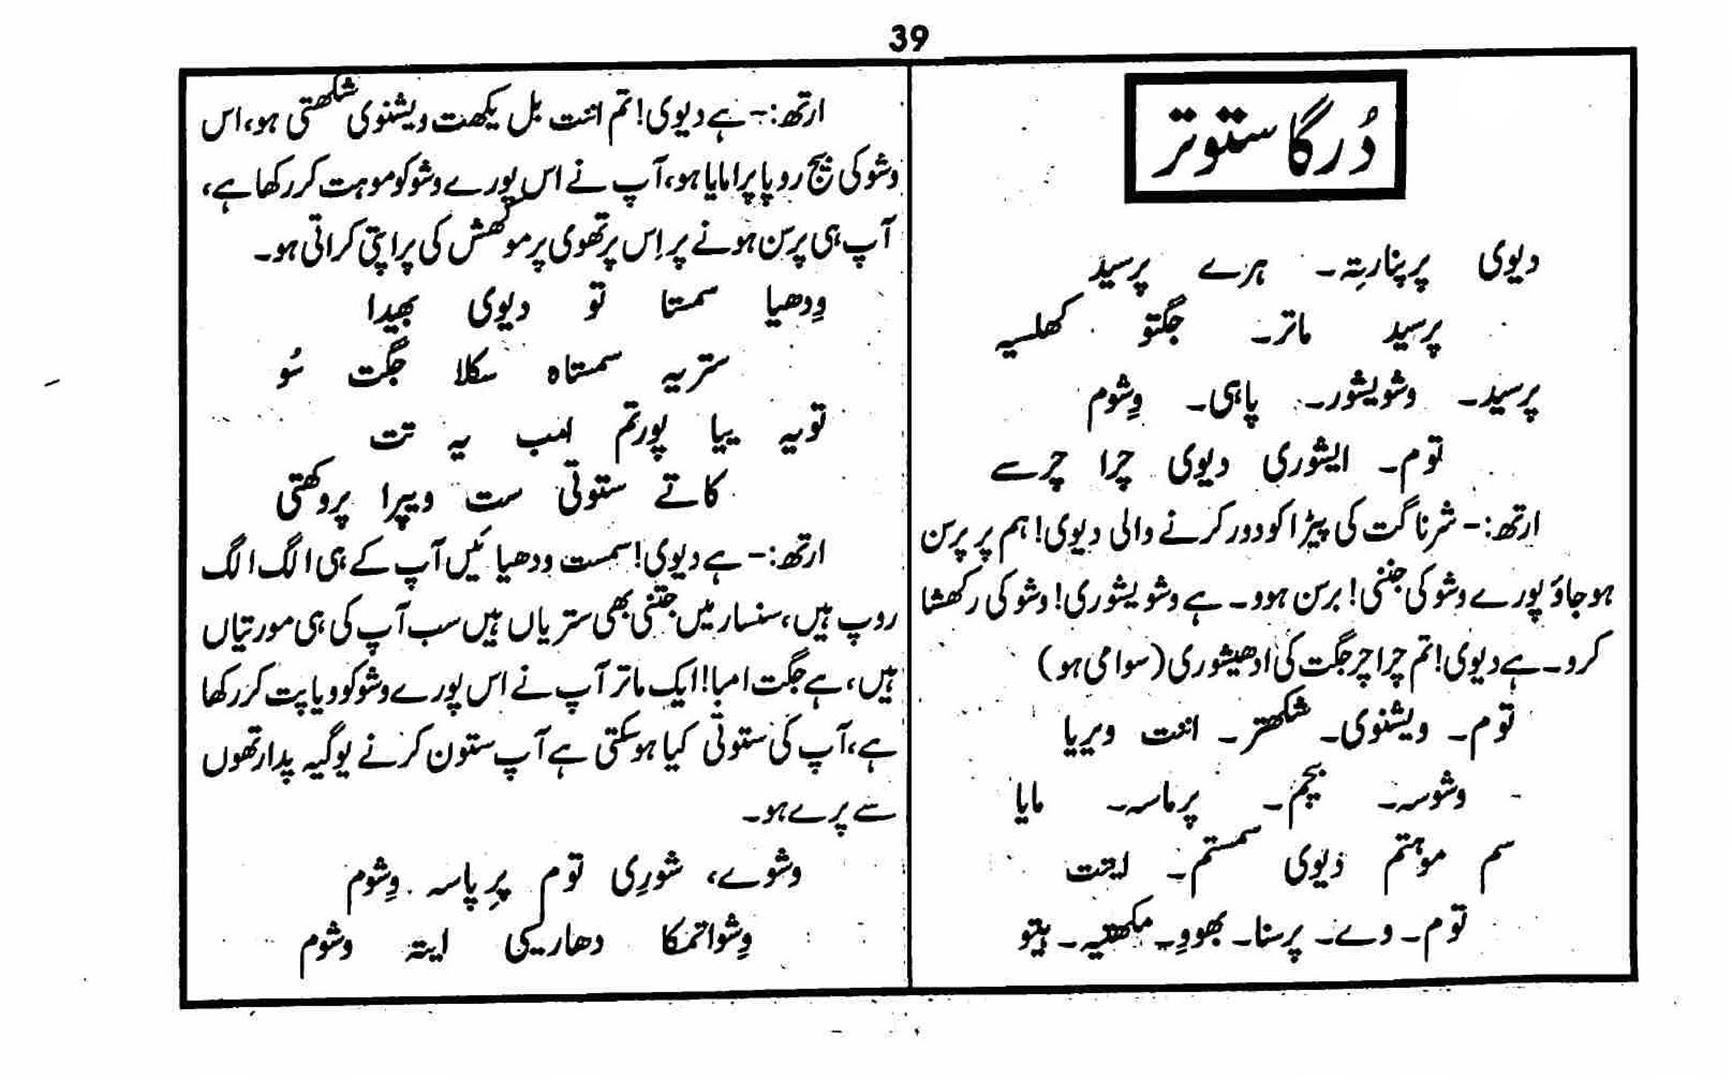 39
دُرگا ستوتر
دیوی پرپنارتِہ۔ ہرے پرسید
پرسید ماتر۔ جگتو کھلسیہ
پرسید۔ وشویشور۔ پاہی۔ وِشوم
توم۔ ایشوری دیوی چرا چرسے
ارتھ:- شرناگت کی پیڑا کو دور کرنے والی دیوی! ہم پر پرسن
ہو جاؤ پورے وشو کی جننی! برسن ہوو۔ ہے وشویشوری! وشو کی رکھشا
کرو۔ ہے دیوی! تم چرا چر جگت کی ادھیشوری (سوامی ہو)
توم۔ ویشنوی۔ شکھتر۔ اننت ویریا
وشوسہ۔ بیچم۔ پرماسہ۔ مایا
سم موہتم دیوی سمستم۔ ایتت
توم۔ وے۔ پرسنا۔ بھووِ۔ مکھتیہ۔ ہیتو
ارتھ:- ہے دیوی! تم اننت بل یکھت ویشنوی شکھتی ہو، اس
وشو کی بیج روپا پرا مایا ہو، آپ نے اس پورے وشو کو موہت کر رکھا ہے،
آپ ہی پرسن ہونے پر اِس پرتھوی پر موکھش کی پراپتی کراتی ہو۔
وِدھیا سمستا تو دیوی بھیدا
ستریہ سمستاہ سکلا جگت سُو
تویہ ییا پورتم امب یہ تت
کاتے ستوتی ست ویپرا پروکھتی
ارتھ:- ہے دیوی! سمست ودھیائیں آپ کے ہی الگ الگ
روپ ہیں، سنسار میں جتنی بھی ستریاں ہیں سب آپ کی ہی مورتیاں
ہیں، ہے جگت امبا! ایک ماتر آپ نے اس پورے وشو کو ویاپت کر رکھا
ہے، آپ کی ستوتی کیا ہو سکتی ہے آپ ستون کرنے یوگیہ پدارتھوں
سے پرے ہو۔
وشوے، شورِی توم پرِپاسہ وِشوم
وِشواتمکا دھاریکی ایتہ وشوم